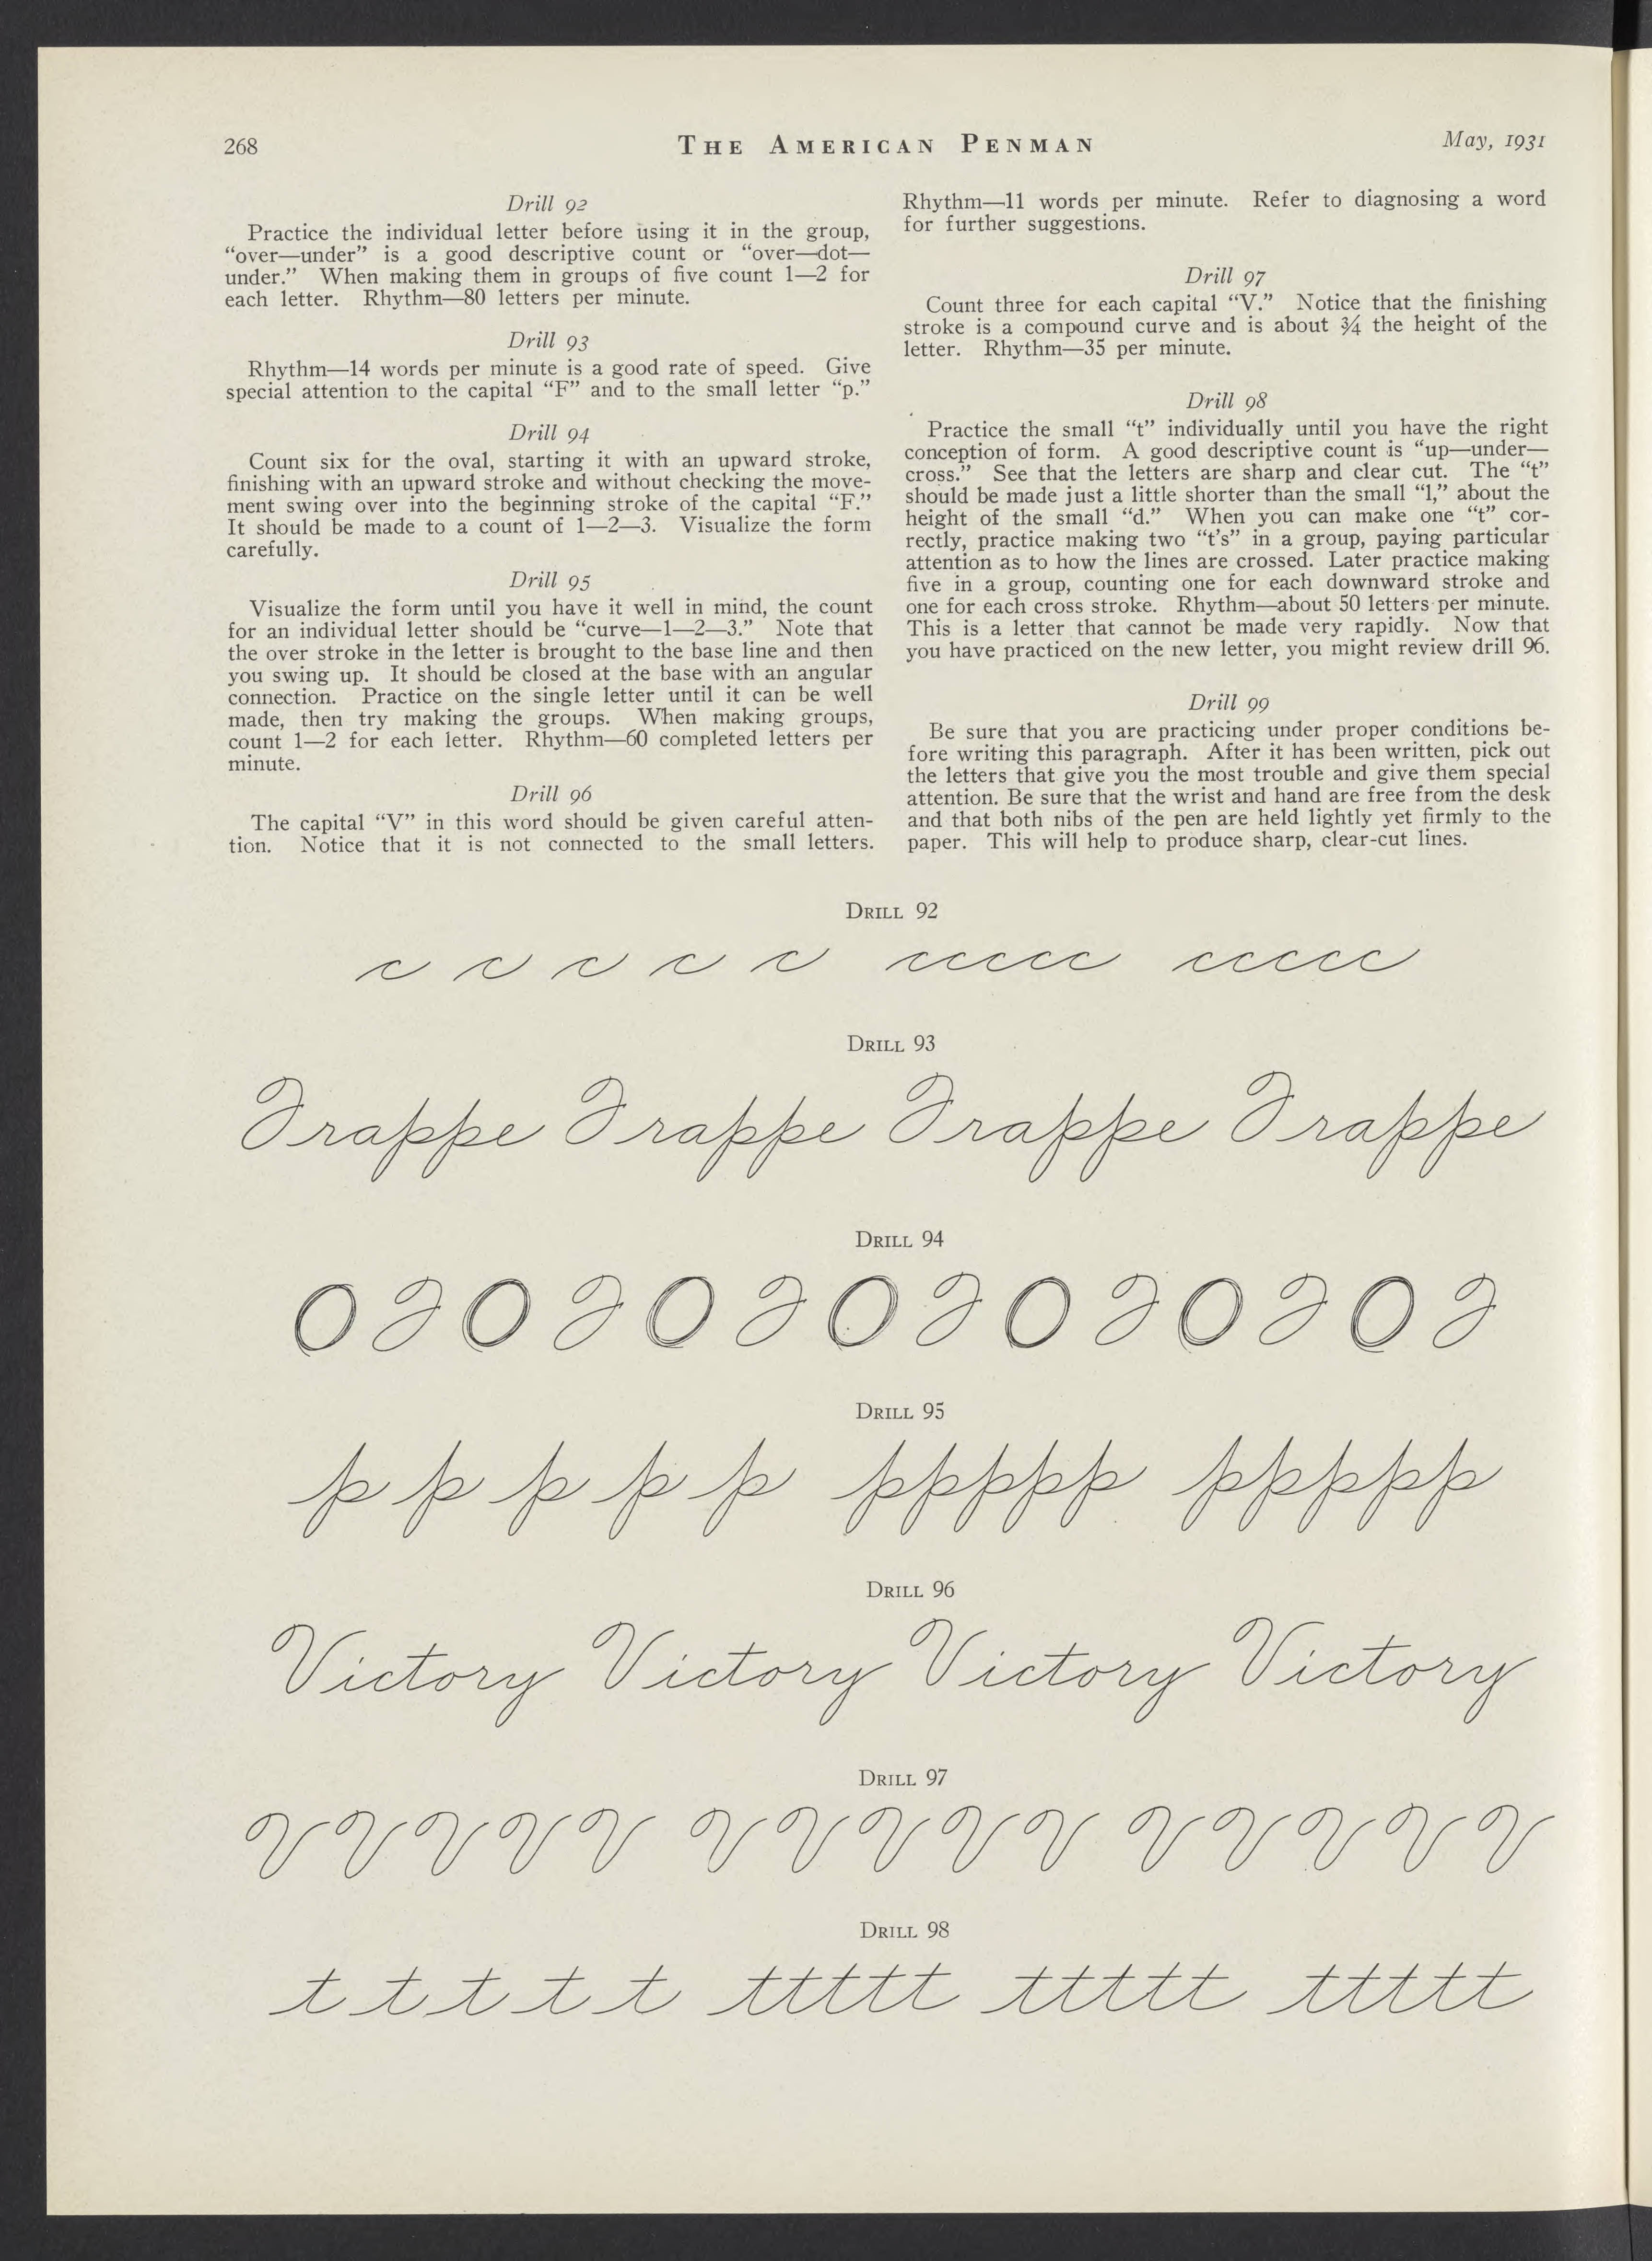 268
THE AMERICAN PENMAN
May, 1931
Drill 92
Practice the individual letter before using it in the group,
“over—under” is a good descriptive count or “over—dot—
under.” When making them in groups of five count 1—2 for
each letter. Rhythm—80 letters per minute.
Drill 93
Rhythm—14 words per minute is a good rate of speed. Give
special attention to the capital “F” and to the small letter “p.”
Drill 94
Count six for the oval, starting it with an upward stroke,
finishing with an upward stroke and without checking the move-
ment swing over into the beginning stroke of the capital “F.”
It should be made to a count of 1—2—3. Visualize the form
carefully.
Drill 95
Visualize the form until you have it well in mind, the count
for an individual letter should be “curve—1—2—3.” Note that
the over stroke in the letter is brought to the base line and then
you swing up. It should be closed at the base with an angular
connection. Practice on the single letter until it can be well
made, then try making the groups. When making groups,
count 1—2 for each letter. Rhythm—60 completed letters per
minute.
Drill 96
The capital “V” in this word should be given careful atten-
tion. Notice that it is not connected to the small letters.
Rhythm—11 words per minute. Refer to diagnosing a word
for further suggestions.
Drill 97
Count three for each capital “V.” Notice that the finishing
stroke is a compound curve and is about ¾ the height of the
letter. Rhythm—35 per minute.
Drill 98
Practice the small “t” individually until you have the right
conception of form. A good descriptive count is “up—under—
cross.” See that the letters are sharp and clear cut. The “t”
should be made just a little shorter than the small “l,” about the
height of the small “d.” When you can make one “t” cor-
rectly, practice making two “t’s” in a group, paying particular
attention as to how the lines are crossed. Later practice making
five in a group, counting one for each downward stroke and
one for each cross stroke. Rhythm—about 50 letters per minute.
This is a letter that cannot be made very rapidly. Now that
you have practiced on the new letter, you might review drill 96.
Drill 99
Be sure that you are practicing under proper conditions be-
fore writing this paragraph. After it has been written, pick out
the letters that give you the most trouble and give them special
attention. Be sure that the wrist and hand are free from the desk
and that both nibs of the pen are held lightly yet firmly to the
paper. This will help to produce sharp, clear-cut lines.
DRILL 92
c c c c c ccccc ccccc
DRILL 93
Frappe Frappe Frappe Frappe
DRILL 94
O F O F O F O F O F O F O F
DRILL 95
p p p p p ppppp ppppp
DRILL 96
Victory Victory Victory Victory
DRILL 97
V V V V V V V V V V V V V V V
DRILL 98
t t t t t ttttt ttttt ttttt